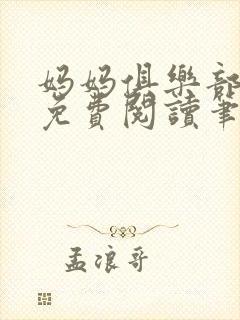 媽媽俱樂部
免費閱讀筆
孟浪哥